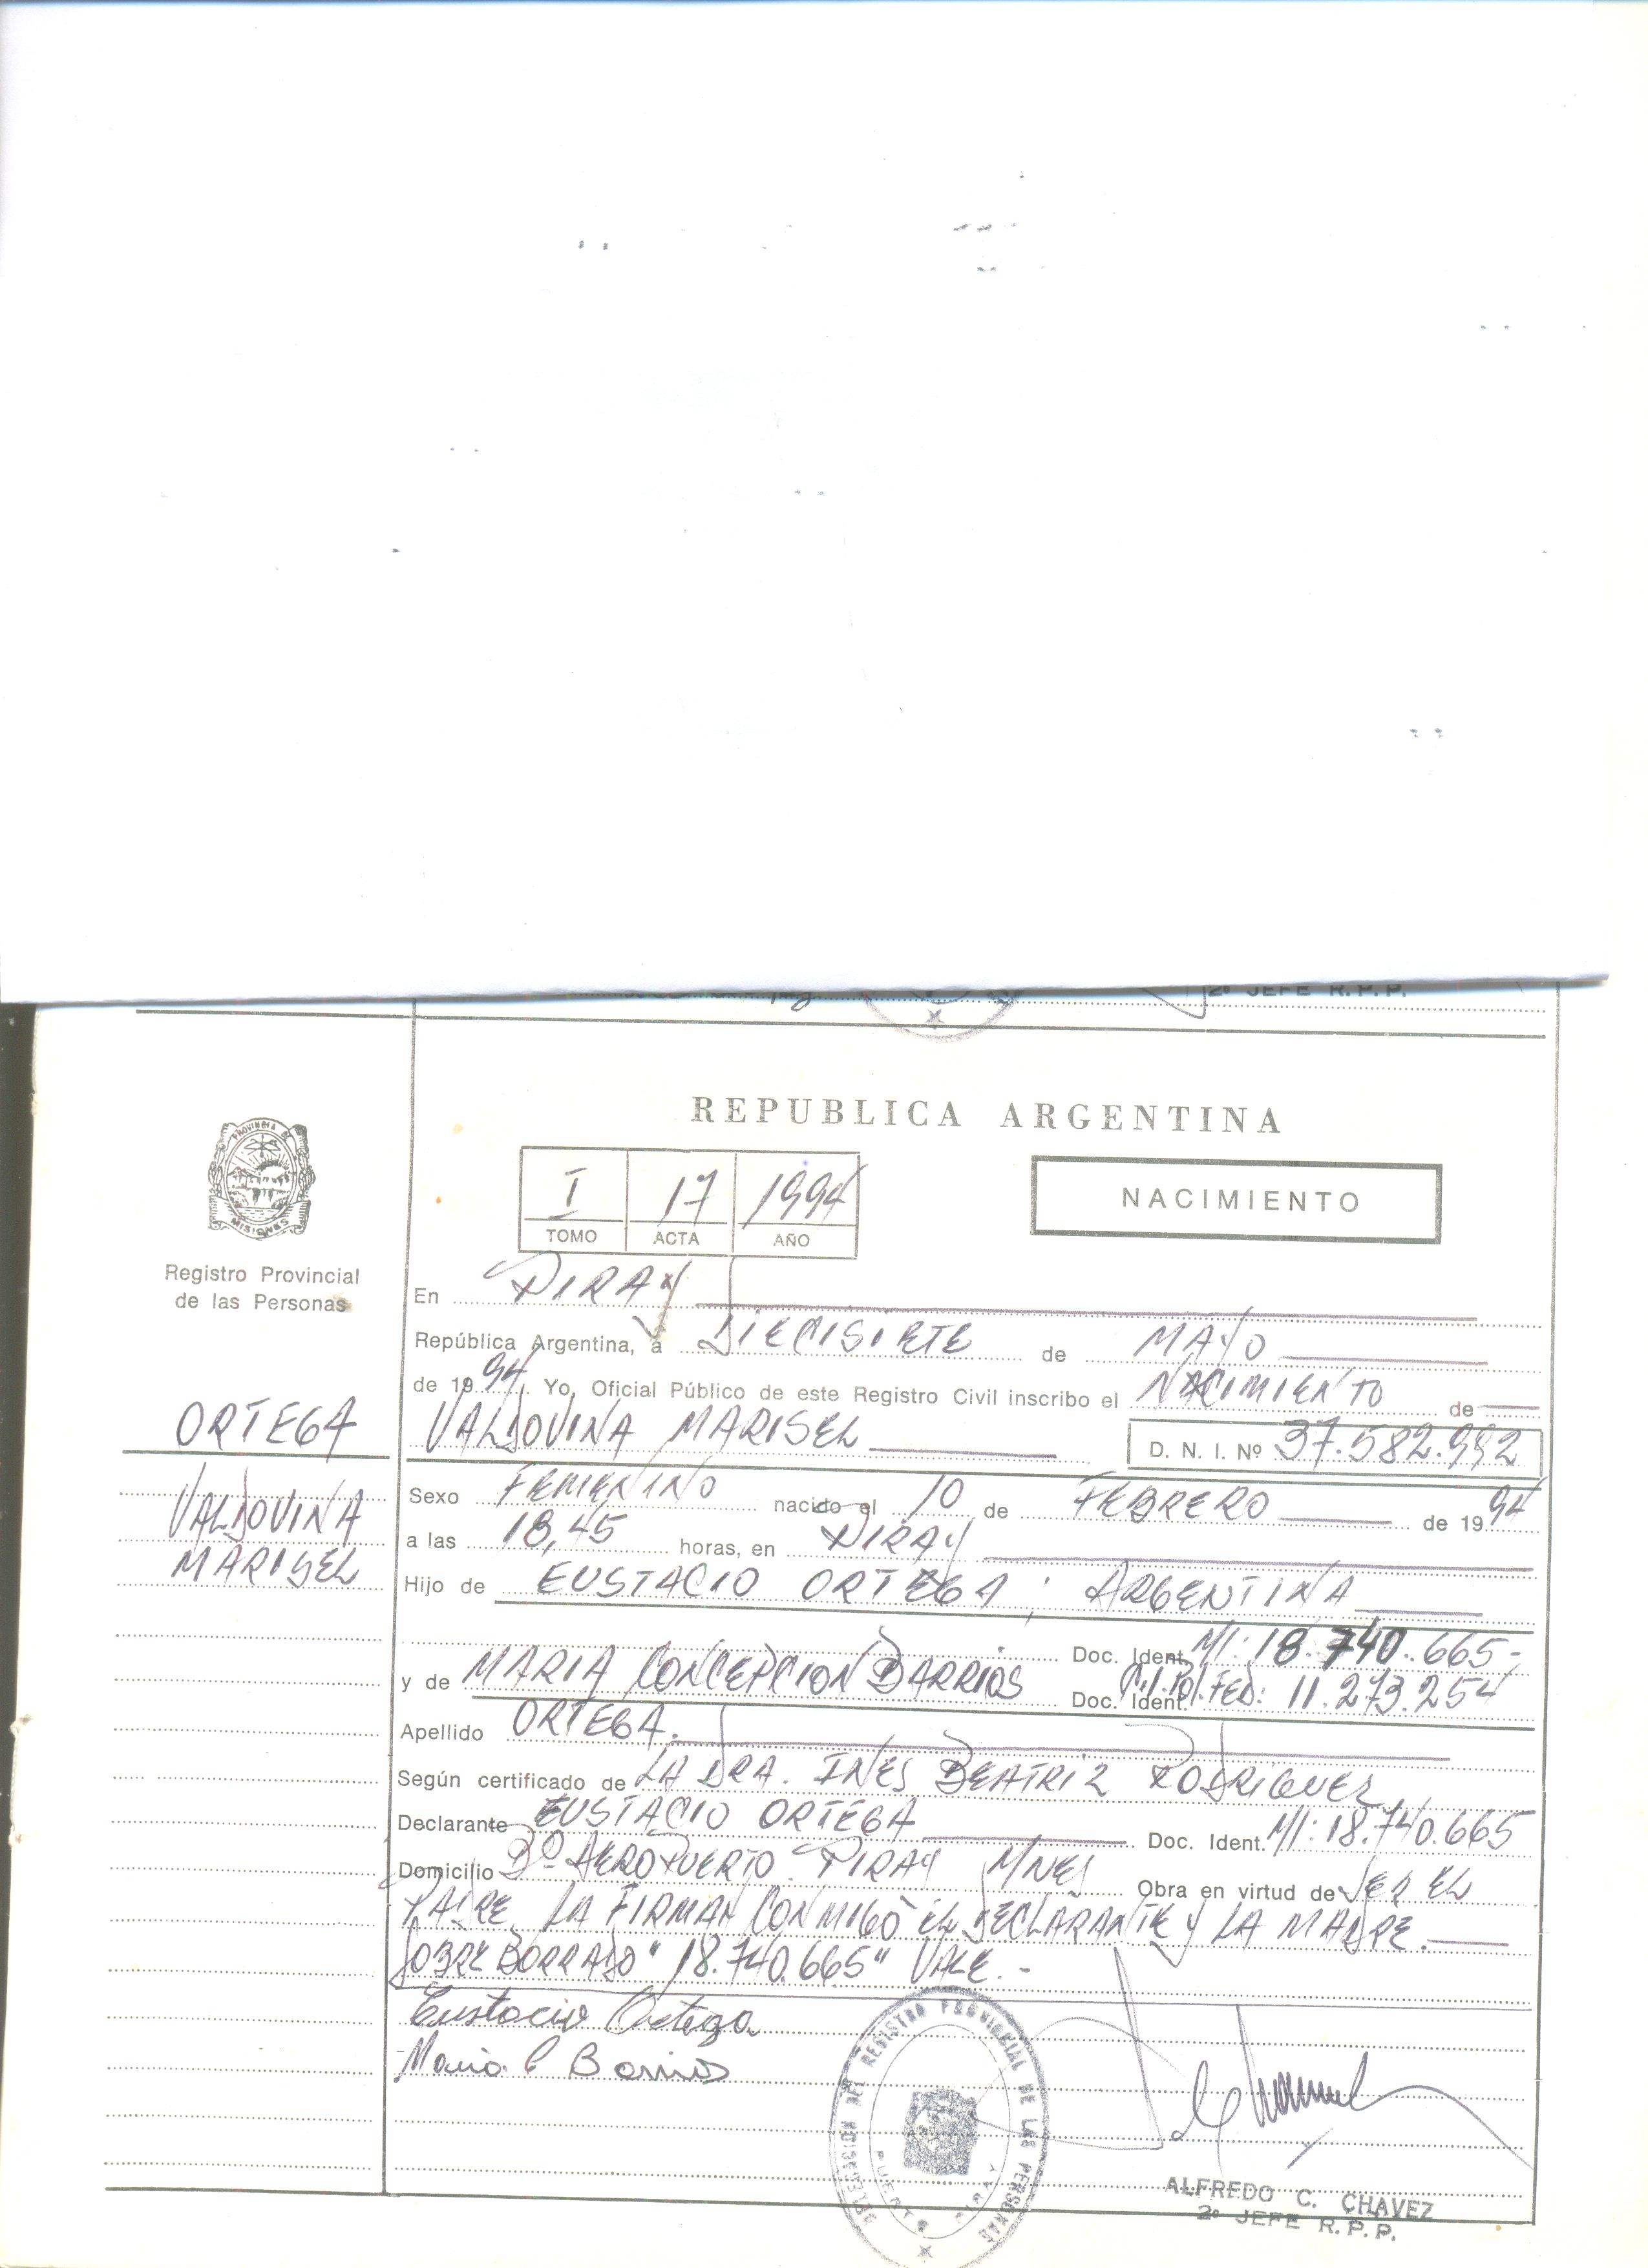 2º JEFE R.P.P.
REPUBLICA ARGENTINA
PROVINCIA DE
MISIONES
Registro Provincial
de las Personas
I 17 1994
TOMO ACTA AÑO
NACIMIENTO
En PIRAY
República Argentina, a DIECISIETE de MAYO
de 1994, Yo, Oficial Público de este Registro Civil inscribo el NACIMIENTO de
ORTEGA
VALDOVINA MARISEL D. N. I. Nº 37.582.992
VALDOVINA
MARISEL
Sexo FEMENINO nacido el 10 de FEBRERO de 1994
a las 18,45 horas, en PIRAY
Hijo de EUSTACIO ORTEGA ; ARGENTINA
Doc. Ident. MI: 18.740.665-;
y de MARIA CONCEPCION BARRIOS Doc. Ident. C.I.Pol.FED: 11.273.254
Apellido ORTEGA.
Según certificado de LA DRA. INES BEATRIZ RODRIGUEZ
Declarante EUSTACIO ORTEGA Doc. Ident. MI: 18.740.665
Domicilio Bº AEROPUERTO PIRAY MNES Obra en virtud de SER EL
PADRE. LA FIRMAN CONMIGO EL DECLARANTE Y LA MADRE.
SOBRE BORRADO "18.740.665" VALE.-
Eustacio Ortega
Maria C Barrios
DELEGACION DEL REGISTRO PROVINCIAL DE LAS PERSONAS
PUERTO PIRAY
ALFREDO C. CHAVEZ
2º JEFE R.P.P.